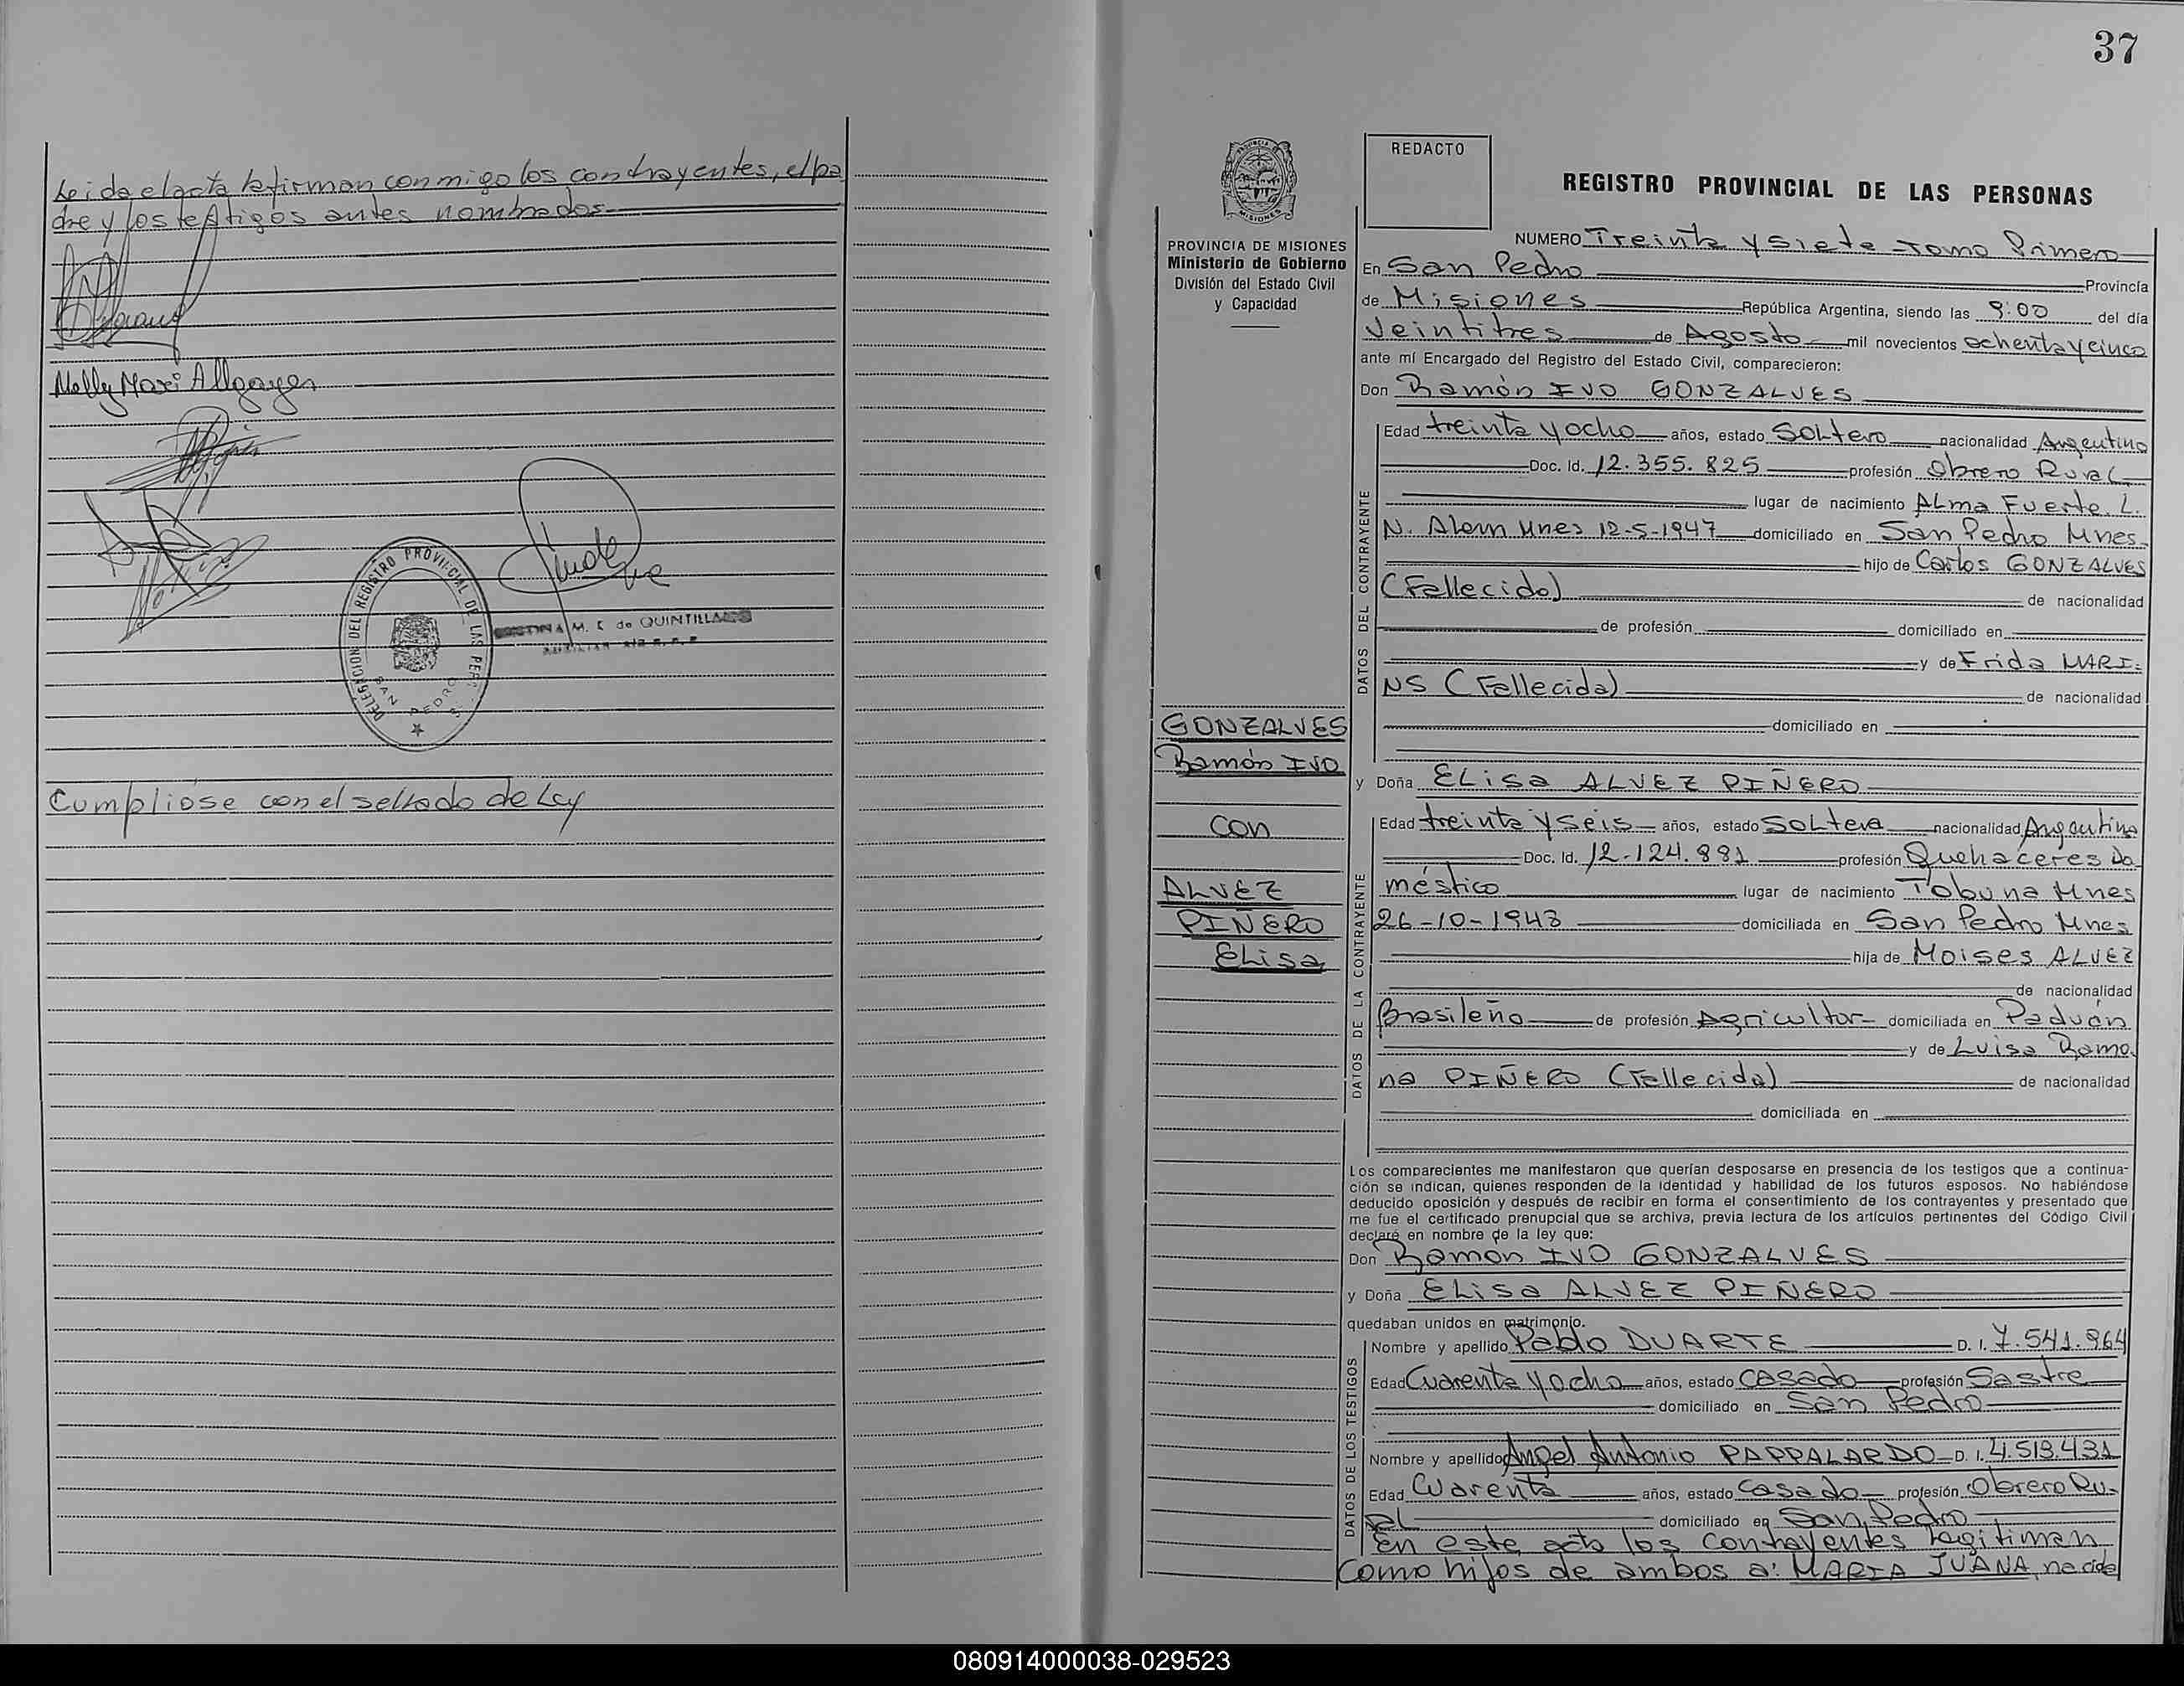 Leida el acta la firman conmigo los contrayentes, el pa
dre y los testigos antes nombrados
Melly Mari Allgayer
DELEGACION DEL REGISTRO PROVINCIAL DE LAS PERS.
SAN PEDRO
M. E. de QUINTILLANO
Cumpliose con el sellado de Ley
37
PROVINCIA DE MISIONES
Ministerio de Gobierno
División del Estado Civil
y Capacidad
GONZALVES
Ramón IVO
con
ALVEZ
PIÑERO
Elisa
REDACTO
REGISTRO PROVINCIAL DE LAS PERSONAS
NUMERO Treinta y siete Tomo Primero
En San Pedro Provincia
de Misiones República Argentina, siendo las 9:00 del día
Veintitres de Agosto mil novecientos ochenta y cinco
ante mí Encargado del Registro del Estado Civil, comparecieron:
Don Ramón IVO GONZALVES
DATOS DEL CONTRAYENTE
Edad treinta y ocho años, estado Soltero nacionalidad Argentino
Doc. Id. 12.355.825 profesión Obrero Rural
lugar de nacimiento Alma Fuerte L.
N. Alem Mnes 12-5-1947 domiciliado en San Pedro Mnes
hijo de Carlos GONZALVES
(Fallecido) de nacionalidad
de profesión domiciliado en
y de Frida MARI-
NS (Fallecida) de nacionalidad
domiciliado en
y Doña Elisa ALVEZ PIÑERO
DATOS DE LA CONTRAYENTE
Edad treinta y seis años, estado Soltera nacionalidad Argentina
Doc. Id. 12.124.881 profesión Quehaceres Do
méstico lugar de nacimiento Tobuna Mnes
26-10-1948 domiciliada en San Pedro Mnes
hija de Moises ALVEZ
de nacionalidad
Brasileño de profesión Agricultor domiciliada en Paduán
y de Luisa Ramo
na PIÑERO (Fallecida) de nacionalidad
domiciliada en
Los comparecientes me manifestaron que querían desposarse en presencia de los testigos que a continua-
ción se indican, quienes responden de la identidad y habilidad de los futuros esposos. No habiéndose
deducido oposición y después de recibir en forma el consentimiento de los contrayentes y presentado que
me fue el certificado prenupcial que se archiva, previa lectura de los artículos pertinentes del Código Civil
declaré en nombre de la ley que:
Don Ramon IVO GONZALVES
y Doña Elisa ALVEZ PIÑERO
quedaban unidos en matrimonio.
DATOS DE LOS TESTIGOS
Nombre y apellido Pablo DUARTE D. I. 7.541.964
Edad Cuarenta y ocho años, estado casado profesión Sastre
domiciliado en San Pedro
Nombre y apellido Angel Antonio PAPPALARDO D. I. 4.513.431
Edad Cuarenta años, estado Casado profesión Obrero Ru-
ral domiciliado en San Pedro
En este acto los contrayentes legitiman
Como hijos de ambos a: MARIA JUANA, nacida
080914000038-029523